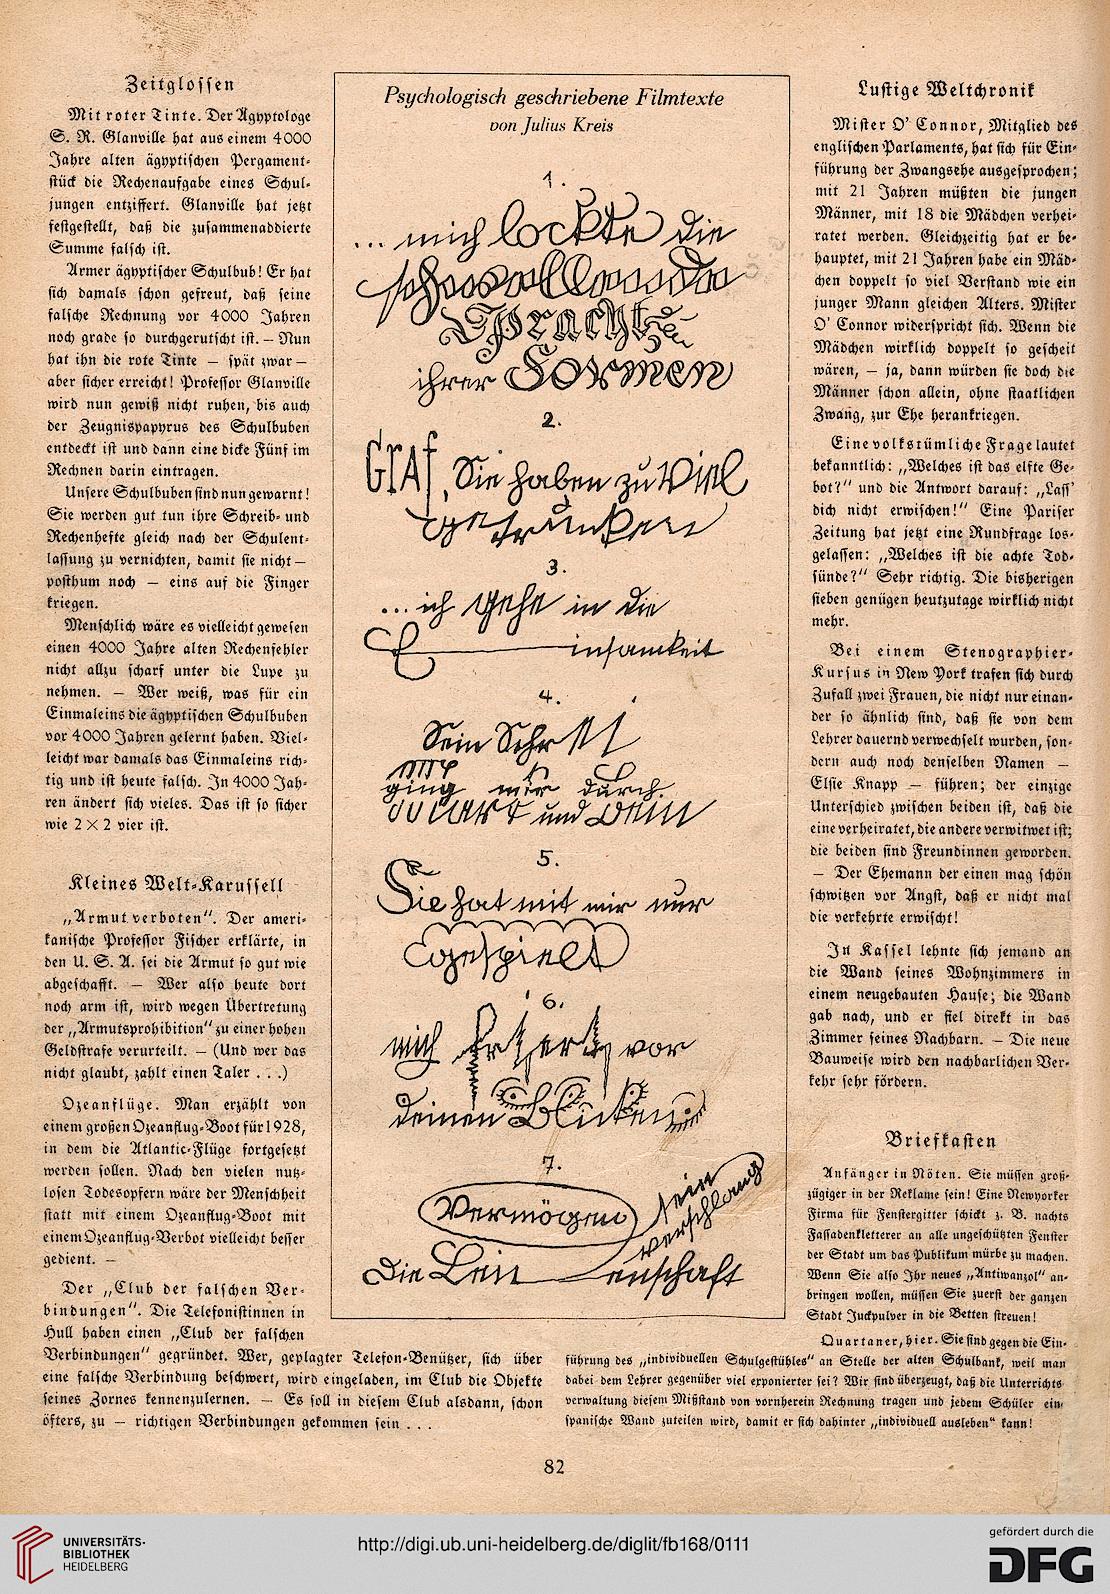 Zeitglossen
Mit roter Tinte. Der Ägyptologe
S. R. Glanville hat aus einem 4000
Jahre alten ägyptischen Pergament-
stück die Rechenaufgabe eines Schul-
jungen entziffert. Glanville hat jetzt
festgestellt, daß die zusammenaddierte
Summe falsch ist.
Armer ägyptischer Schulbub! Er hat
sich damals schon gefreut, daß seine
falsche Rechnung vor 4000 Jahren
noch grade so durchgerutscht ist. — Nun
hat ihn die rote Tinte — spät zwar —
aber sicher erreicht! Professor Glanville
wird nun gewiß nicht ruhen, bis auch
der Zeugnispapyrus des Schulbuben
entdeckt ist und dann eine dicke Fünf im
Rechnen darin eintragen.
Unsere Schulbuben sind nun gewarnt!
Sie werden gut tun ihre Schreib- und
Rechenhefte gleich nach der Schulent-
lassung zu vernichten, damit sie nicht —
posthum noch — eins auf die Finger
kriegen.
Menschlich wäre es vielleicht gewesen
einen 4000 Jahre alten Rechenfehler
nicht allzu scharf unter die Lupe zu
nehmen. — Wer weiß, was für ein
Einmaleins die ägyptischen Schulbuben
vor 4000 Jahren gelernt haben. Viel-
leicht war damals das Einmaleins rich-
tig und ist heute falsch. In 4000 Jah-
ren ändert sich vieles. Das ist so sicher
wie 2 × 2 vier ist.
Kleines Welt-Karussell
„Armut verboten". Der ameri-
kanische Professor Fischer erklärte, in
den U. S. A. sei die Armut so gut wie
abgeschafft. — Wer also heute dort
noch arm ist, wird wegen Übertretung
der „Armutsprohibition" zu einer hohen
Geldstrafe verurteilt. — (Und wer das
nicht glaubt, zahlt einen Taler . . .)
Ozeanflüge. Man erzählt von
einem großen Ozeanflug-Boot für 1928,
in dem die Atlantic-Flüge fortgesetzt
werden sollen. Nach den vielen nutz-
losen Todesopfern wäre der Menschheit
statt mit einem Ozeanflug-Boot mit
einem Ozeanflug-Verbot vielleicht besser
gedient. —
Der „Club der falschen Ver-
bindungen". Die Telefonistinnen in
Hull haben einen „Club der falschen
Verbindungen" gegründet. Wer, geplagter Telefon-Benützer, sich über
eine falsche Verbindung beschwert, wird eingeladen, im Club die Objekte
seines Zornes kennenzulernen. — Es soll in diesem Club alsdann, schon
öfters, zu — richtigen Verbindungen gekommen sein . . .
Psychologisch geschriebene Filmtexte
von Julius Kreis
1.
... mich lockte die
schwellende
Pracht
ihrer Formen
2.
Graf, Sie haben zu viel
getrunken
3.
... ich gehe in die
Einsamkeit
4.
Sein Schrei
ging mir durch
Mark und Bein
5.
Sie hat mit mir nur
gespielt
6.
mich fröstert vor
deinen Blicken
7.
Vermögen sein
verschlang
Die Leidenschaft
Lustige Weltchronik
Mister O' Connor, Mitglied des
englischen Parlaments, hat sich für Ein-
führung der Zwangsehe ausgesprochen;
mit 21 Jahren müßten die jungen
Männer, mit 18 die Mädchen verhei-
ratet werden. Gleichzeitig hat er be-
hauptet, mit 21 Jahren habe ein Mäd-
chen doppelt so viel Verstand wie ein
junger Mann gleichen Alters. Mister
O' Connor widerspricht sich. Wenn die
Mädchen wirklich doppelt so gescheit
wären, — ja, dann würden sie doch die
Männer schon allein, ohne staatlichen
Zwang, zur Ehe herankriegen.
Eine volkstümliche Frage lautet
bekanntlich: „Welches ist das elfte Ge-
bot?" und die Antwort darauf: „Lass'
dich nicht erwischen!" Eine Pariser
Zeitung hat jetzt eine Rundfrage los-
gelassen: „Welches ist die achte Tod-
sünde?" Sehr richtig. Die bisherigen
sieben genügen heutzutage wirklich nicht
mehr.
Bei einem Stenographier-
Kursus in New York trafen sich durch
Zufall zwei Frauen, die nicht nur einan-
der so ähnlich sind, daß sie von dem
Lehrer dauernd verwechselt wurden, son-
dern auch noch denselben Namen —
Elsie Knapp — führen; der einzige
Unterschied zwischen beiden ist, daß die
eine verheiratet, die andere verwitwet ist;
die beiden sind Freundinnen geworden.
— Der Ehemann der einen mag schön
schwitzen vor Angst, daß er nicht mal
die verkehrte erwischt!
In Kassel lehnte sich jemand an
die Wand seines Wohnzimmers in
einem neugebauten Hause; die Wand
gab nach, und er fiel direkt in das
Zimmer seines Nachbarn. — Die neue
Bauweise wird den nachbarlichen Ver-
kehr sehr fördern.
Briefkasten
Anfänger in Nöten. Sie müssen groß-
zügiger in der Reklame sein! Eine Newyorker
Firma für Fenstergitter schickt z. B. nachts
Fassadenkletterer an alle ungeschützten Fenster
der Stadt um das Publikum mürbe zu machen.
Wenn Sie also Ihr neues „Antiwanzol" an-
bringen wollen, müssen Sie zuerst der ganzen
Stadt Juckpulver in die Betten streuen!
Quartaner, hier. Sie sind gegen die Ein-
führung des „individuellen Schulgestühles" an Stelle der alten Schulbank, weil man
dabei dem Lehrer gegenüber viel exponierter sei? Wir sind überzeugt, daß die Unterrichts
verwaltung diesem Mißstand von vornherein Rechnung tragen und jedem Schüler ein
spanische Wand zuteilen wird, damit er sich dahinter „individuell ausleben" kann!
82
UNIVERSITÄTS-
BIBLIOTHEK
HEIDELBERG
http://digi.ub.uni-heidelberg.de/diglit/fb168/0111
gefördert durch die
DFG